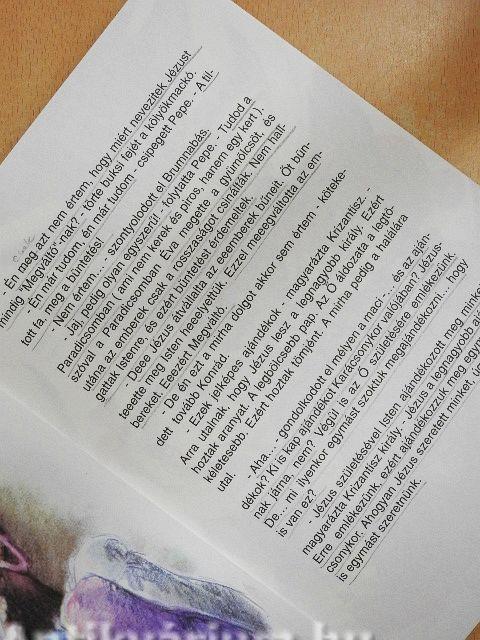 Csak
- Én meg azt nem értem, hogy miért nevezitek Jézust
mindig "Megváltó"-nak? - törte buksi fejét a kölyökmackó.
- Én már tudom, én már tudom - csipegett Pepe. - A til-
tott fa, meg a büntetés!
- Nem értem... - szontyolodott el Brumnabás.
- Jaj, pedig olyan egyszerű! - folytatta Pepe. - Tudod a
Paradicsomban ( ami nem kerek és piros, hanem egy kert ),
szóval a Paradicsomban Éva megette a gyümölcsöt, és
utána az emberek csak a rosszaságot csinálták. Nem hall-
gattak Istenre, és ezért büntetést érdemeltek.
-Deee Jézus átvállalta az eeemberek bűneit. Őt bün-
teeette meg Isten heselyettük. Ezzel meeegváltotta az em-
bereket. Eeezért Megváltó.
- De én ezt a mirha dolgot akkor sem értem - kötekе-
dett tovább Konrád.
- Ezek jelképes ajándékok - magyarázta Krizantisz. -
Arra utalnak, hogy Jézus lesz a legnagyobb király. Ezért
hoztak aranyat. A legbölcsebb pap. Az Ő áldozata a legtö-
kéletesebb. Ezért hoztak tömjént. A mirha pedig a halálára
utal.
- Aha... - gondolkodott el mélyen a maci. - ... és az aján-
dékok? Ki is kap ajándékot Karácsonykor valójában? Jézus-
nak járna, nem? Végül is az Ő születésére emlékezünk.
De... mi ilyenkor egymást szoktuk megajándékozni... hogy
is van ez?
- Jézus születésével Isten ajándékozott meg minket
magyarázta Krizantisz király - Jézus a legnagyobb ajá
Erre emlékezünk, ezért ajándékozzuk meg egym
csonykor. Ahogyan Jézus szeretett minket, úg
is egymást szeretnünk.
Antikvárium.hu